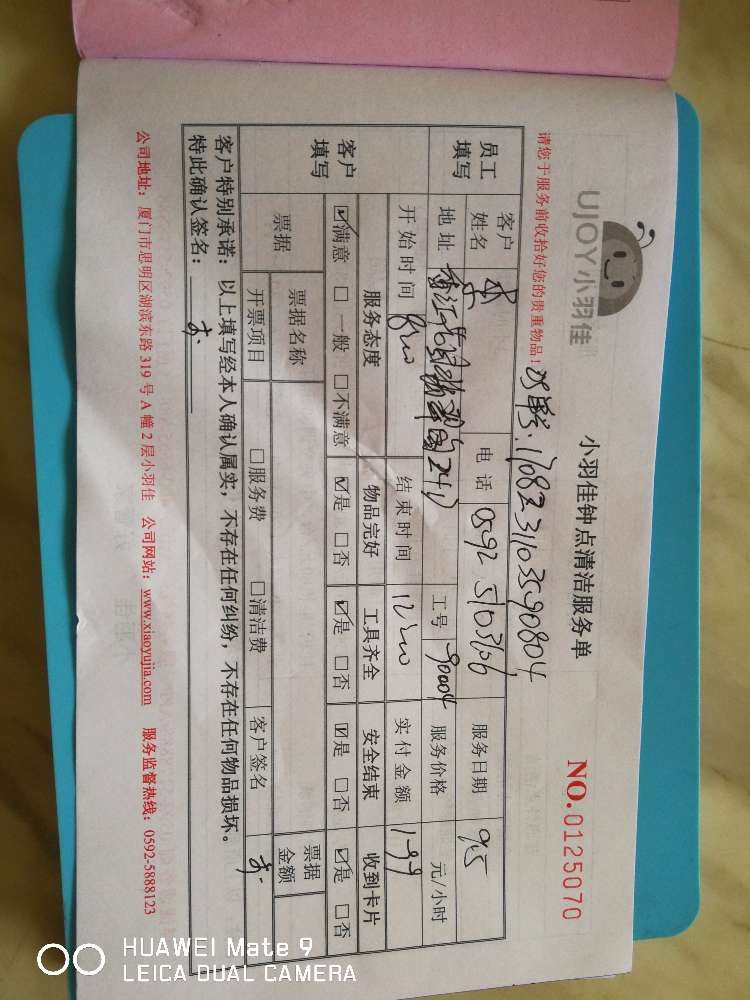 UJOY小羽佳
小羽佳钟点清洁服务单
NO.0125070
请您于服务前收拾好您的贵重物品！
员工填写
客户姓名
电话 0592 5103106
服务日期 9.5
地址
工号 90004
服务价格 元/小时
开始时间 8:00
结束时间 12:00
实付金额 199
客户填写
服务态度 物品完好 工具齐全 安全结束 收到卡片
☑满意 □一般 □不满意 ☑是 □否 ☑是 □否 ☑是 □否 ☑是 □否
票据
票据名称
票据金额
开票项目 □服务费 □清洁费 客户签名
客户特别承诺：以上填写经本人确认属实，不存在任何纠纷，不存在任何物品损坏。
特此确认签名：
公司地址：厦门市思明区湖滨东路 319 号 A 幢 2 层小羽佳 公司网站：www.xiaoyujia.com 服务监督热线：0592-5888123
HUAWEI Mate 9
LEICA DUAL CAMERA